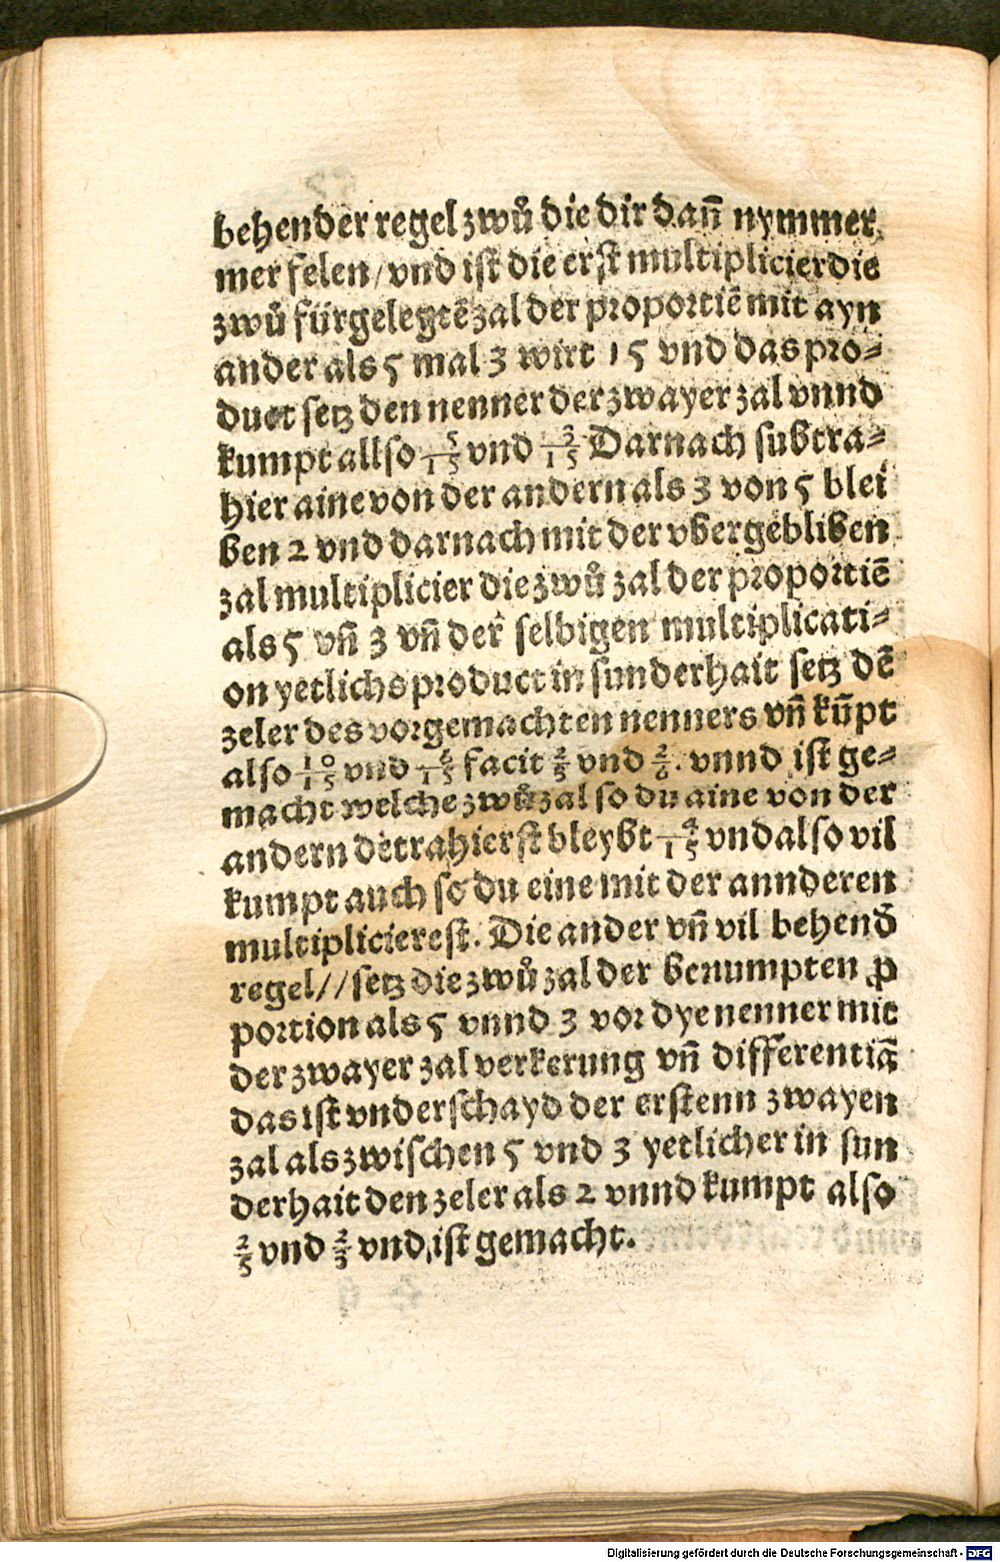 behender regel zwů die dir dañ nymmer
mer felen/vnd ist die erst multiplicier die
zwů fürgelegtē zal der proportiē mit ayn
ander als 5 mal 3 wirt 15 vnd das pro⸗
duct setz den nenner der zwayer zal vnnd
kumpt allso 5/15 vnd 3/15 Darnach subtra⸗
hier aine von der andern als 3 von 5 blei
ben 2 vnd darnach mit der vbergebliben
zal multiplicier die zwů zal der proportiē
als 5 vñ 3 vñ der selbigen multiplicati⸗
on yetlichs product in sunderhait setz dē
zeler des vorgemachten nenners vñ kūpt
also 10/15 vnd 6/15 facit 2/3 vnd 2/6. vnnd ist ge⸗
macht welche zwů zal so du aine von der
andern detrahierst bleybt 4/15 vnd also vil
kumpt auch so du eine mit der annderen
multiplicierest. Die ander vñ vil behend̄
regel//setz die zwů zal der benumpten ꝓ
portion als 5 vnnd 3 vor dye nenner mit
der zwayer zal verkerung vñ differentiā
das ist vnderschayd der erstenn zwayen
zal als zwischen 5 vnd 3 yetlicher in sun
derhait den zeler als 2 vnnd kumpt also
2/5 vnd 2/3 vnd ist gemacht.
Digitalisierung gefördert durch die Deutsche Forschungsgemeinschaft - DFG